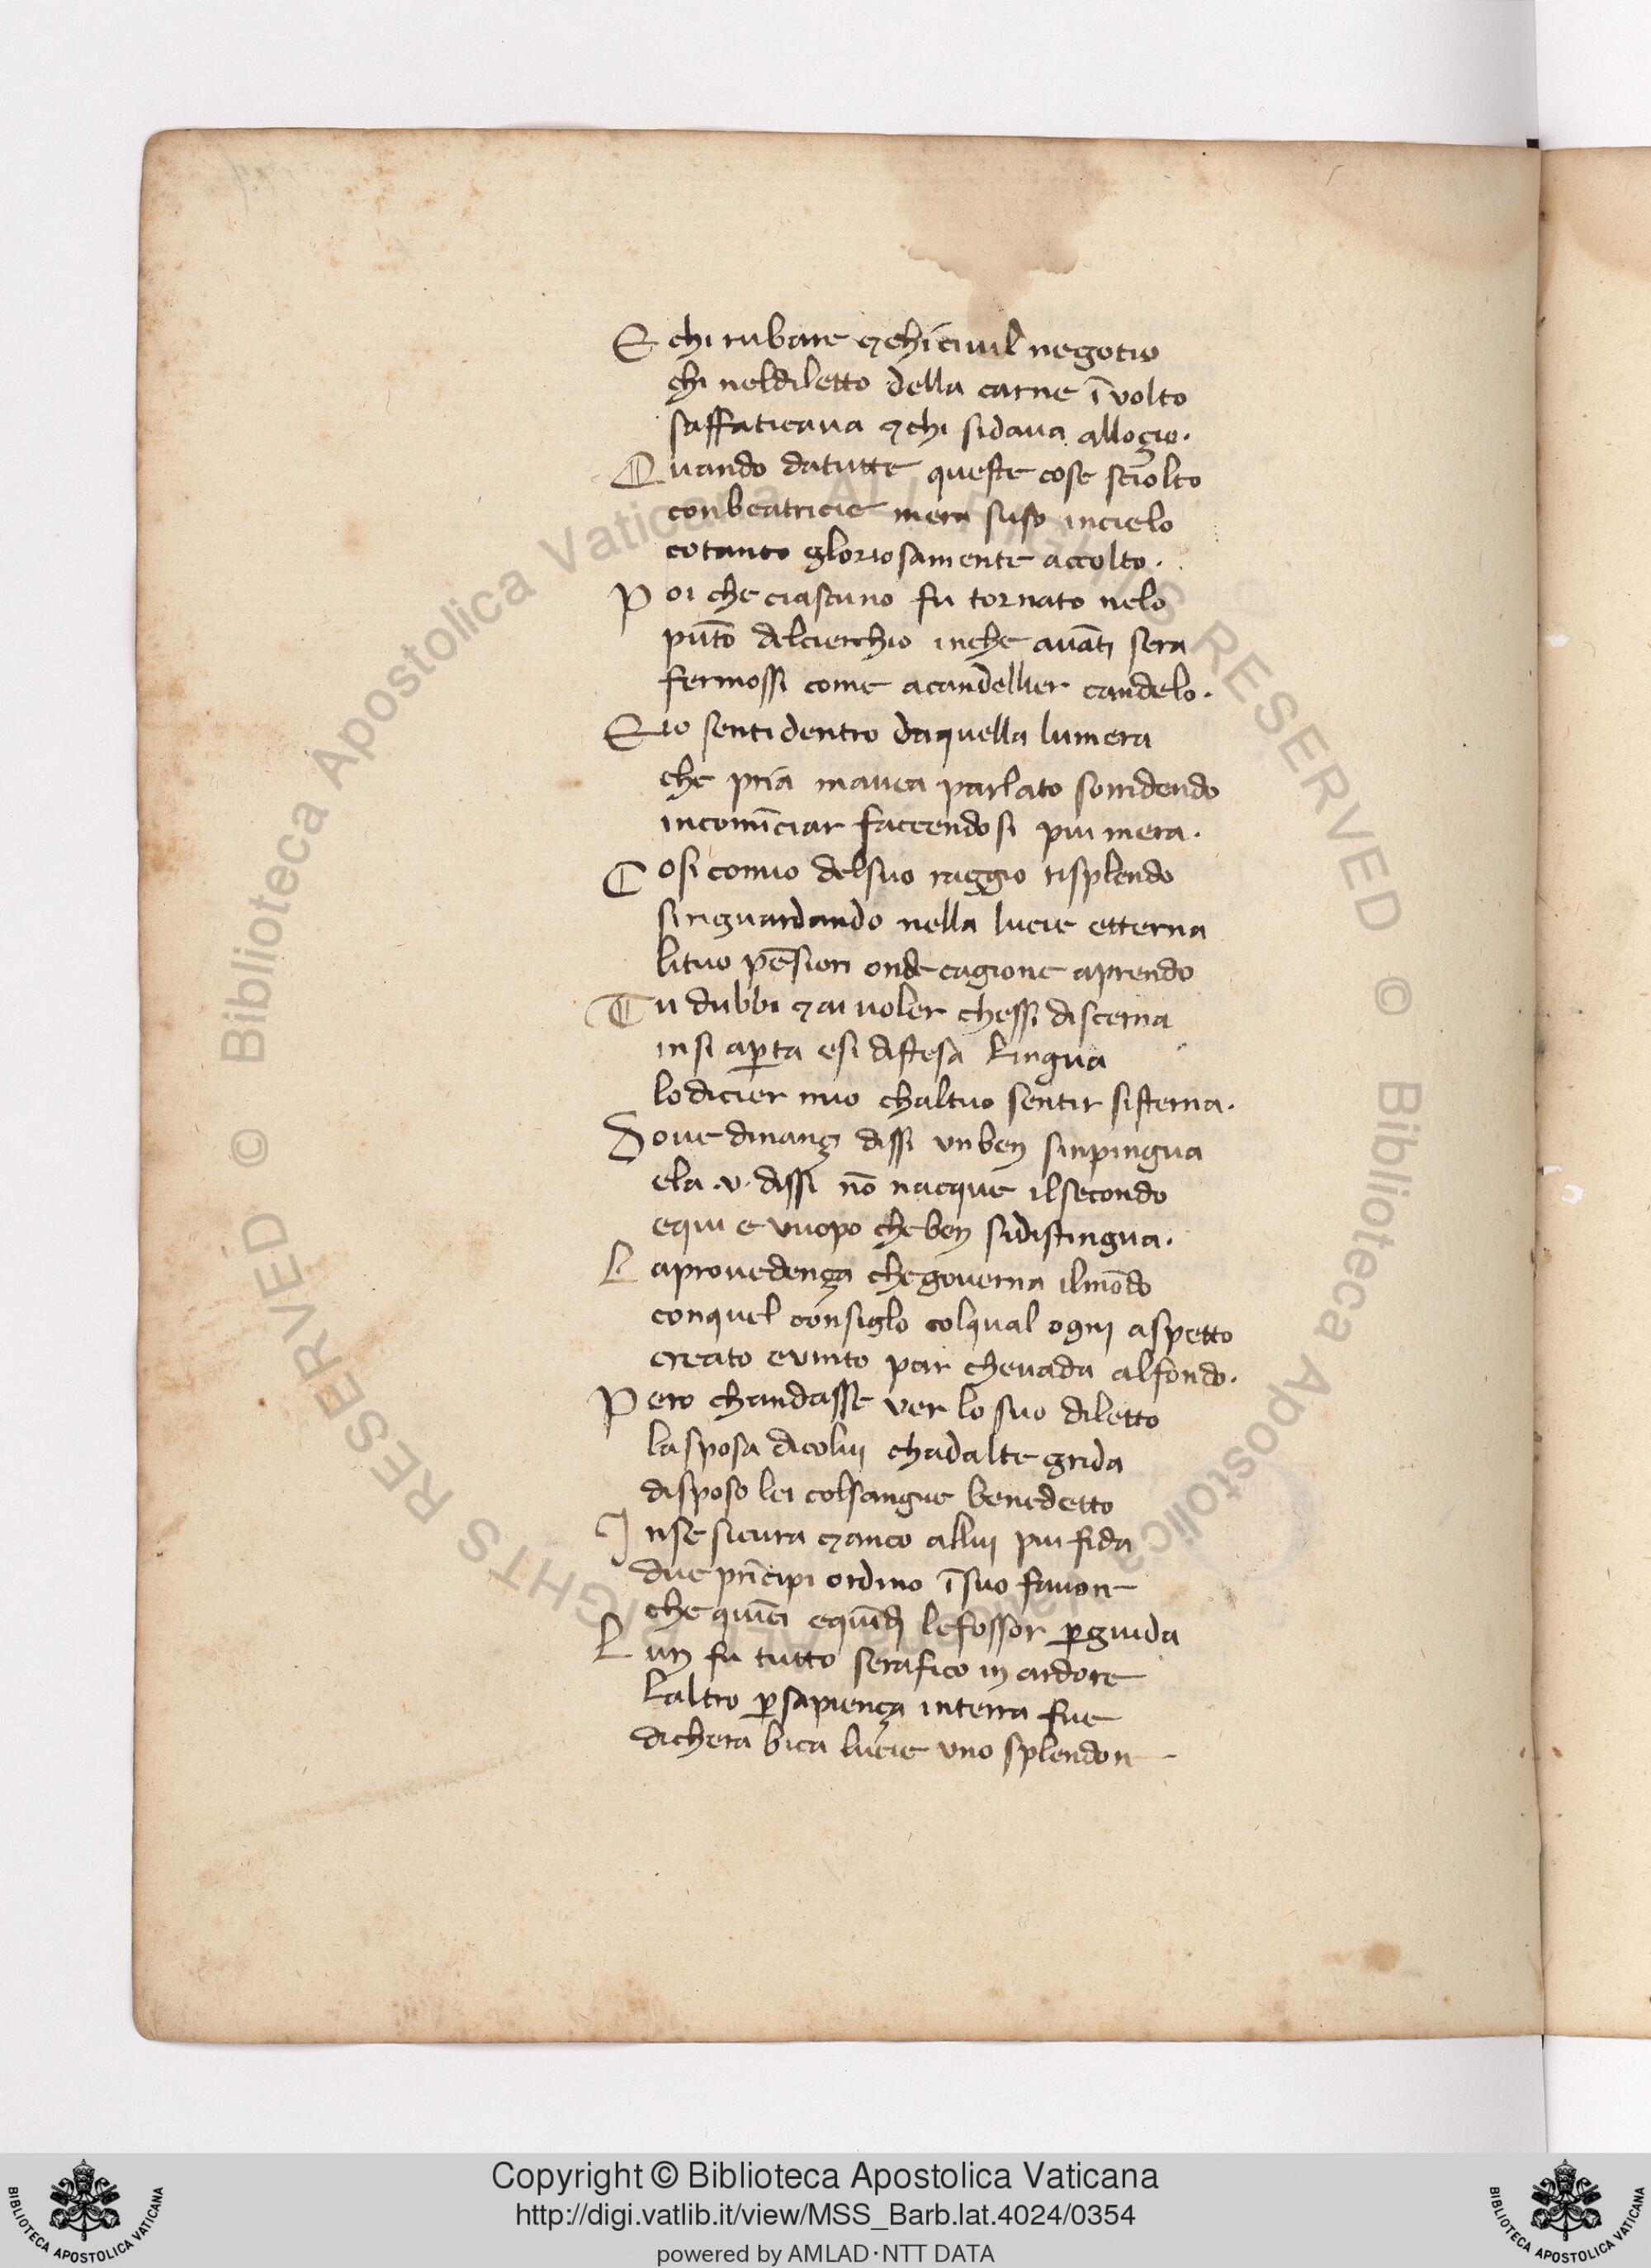 E chi rubare ⁊ chi ciuil negotio
chi neldiletto della carne ī volto
saffaticaua ⁊ chi sidaua allogio.
Quando datutte queste cose sciolto
conbeatricie mera suso incielo
cotanto gloriosamente accolto.
Poi che ciascuno fu tornato nelo
pūto delcierchio inche auāti sera
fermossi come acandellier candelo.
Eio senti dentro daquella lumera
che pria mauea parlato sorridendo
incomīciar faccendosi piu mera.
Cosi comio delsuo raggio risplendo
si riguardando nella lucie etterna
lituo pēsieri onde cagione aprendo
Tu dubbi ⁊ ai uoler chessi discerna
in si aꝑta esi distesa lingua
lodicier mio chaltuo sentir sisterna.
Doue dinançi dissi vnben sinpingua
ela .v. dissi nō nacque ilsecondo
equi e vuopo cheben sidistingua.
Laprouedença chegouerna ilmōdo
conquel consiglo colqual ogni aspetto
creato evinto par cheuada alfondo.
Pero chandasse ver lo suo diletto
lasposa dicolui chadalte grida
disposo lei colsangue benedetto
Inse sicura ⁊ anco allui piu fida
due prīcipi ordino ī suo fauore
che quīci equīdi lefossor ꝑguida
Lun fu tutto serafico in ardore
laltro ꝑsapiença interra fue
dicherubica lucie vno splendore
Copyright © Biblioteca Apostolica Vaticana
http://digi.vatlib.it/view/MSS_Barb.lat.4024/0354
powered by AMLAD·NTT DATA
BIBLIOTECA APOSTOLICA VATICANA
BIBLIOTECA APOSTOLICA VATICANA
© Biblioteca Apostolica Vaticana ALL RIGHTS RESERVED © Biblioteca Apostolica Vaticana ALL RIGHTS RESERVED